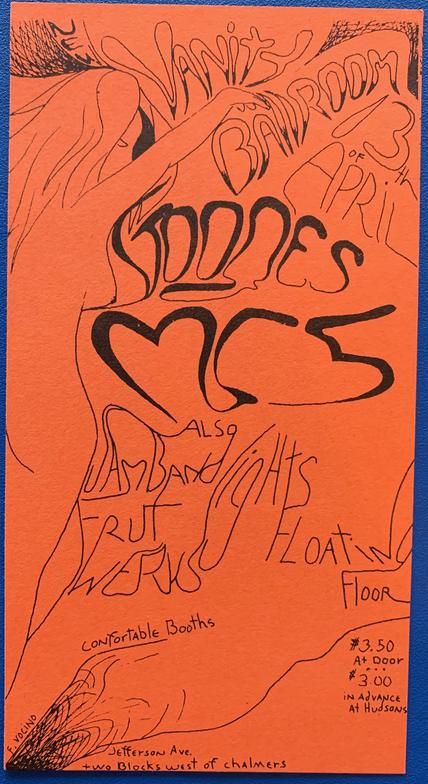 THE
VANITY
BALLROOM
13th
OF
APRIL
STOOGES
MC5
ALSO
JAM BAND
LIGHTS
FRUT
WERKS
FLOATING
FLOOR
CONFORTABLE Booths
$3.50
At Door
$3.00
in Advance
At Hudsons
F. VOCINO
Jefferson Ave.
two Blocks west of chalmers